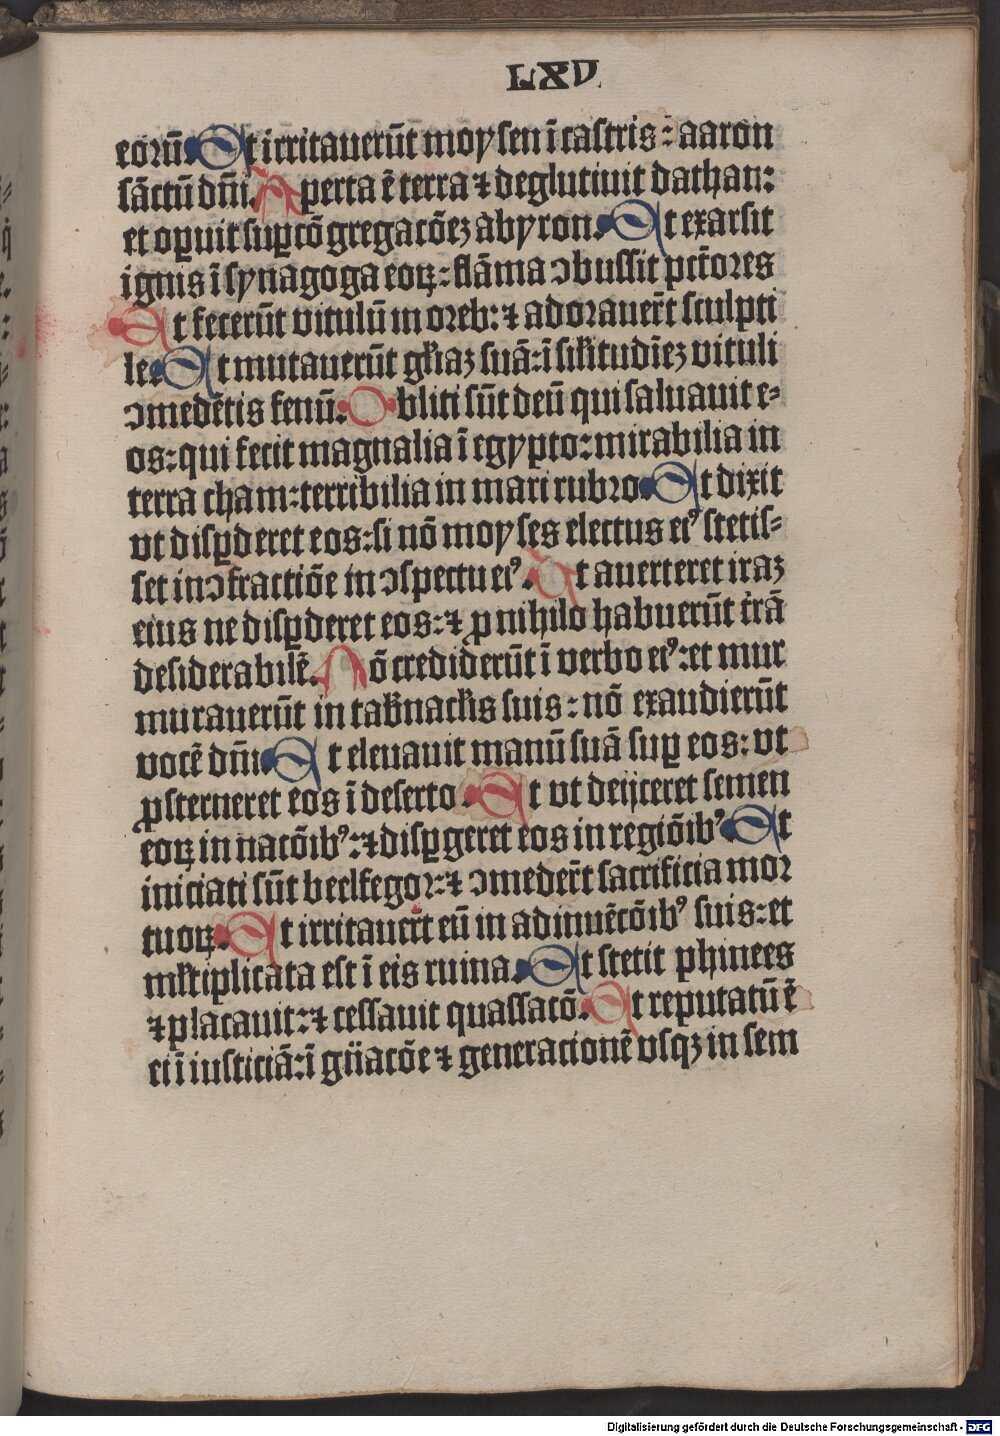 LXV
eorū. Et irritauerūt moysen ī castris: aaron
sāctū dn̄i. Aperta ē terra ⁊ deglutiuit dathan:
et oꝑuit suꝑ cōgregacōeꝫ abyron. Et exarsit
ignis ī synagoga eoꝝ: flāma ꝯbussit pctōres
Et fecerūt vitulū in oreb: ⁊ adorauer̄t sculpti
le. Et mutauerūt gl̄iaꝫ suā: ī sil̄itudīeꝫ vituli
ꝯmedētis fenū. Obliti sūt deū qui saluauit e⸗
os: qui fecit magnalia ī egypto: mirabilia in
terra cham: terribilia in mari rubro. Et dixit
vt disꝑderet eos: si nō moyses electus eiꝰ stetis⸗
set in ꝯfractiōe in ꝯspectu eiꝰ. Vt auerteret iraꝫ
eius ne disꝑderet eos: ⁊ ꝓ nihilo habuerūt t̄rā
desiderabilē. Nō crediderūt ī verbo eiꝰ: et mur
murauerūt in tab̄nacl̄is suis: nō exaudierūt
vocē dn̄i. Et eleuauit manū suā suꝑ eos: vt
ꝓsterneret eos ī deserto. Et vt deijceret semen
eoꝝ in nacōibꝰ: ⁊ disꝑgeret eos in regiōibꝰ Et
iniciati sūt beelfegor: ⁊ ꝯmeder̄t sacrificia mor
tuoꝝ. Et irritauer̄t eū in adinuēcōibꝰ suis: et
ml̄tiplicata est ī eis ruina. Et stetit phinees
⁊ placauit: ⁊ cessauit quassacō. Et reputatū ē
ei ī iusticiā: ī gn̄acōe ⁊ generacionē vsqꝫ in sem
Digitalisierung gefördert durch die Deutsche Forschungsgemeinschaft - DFG